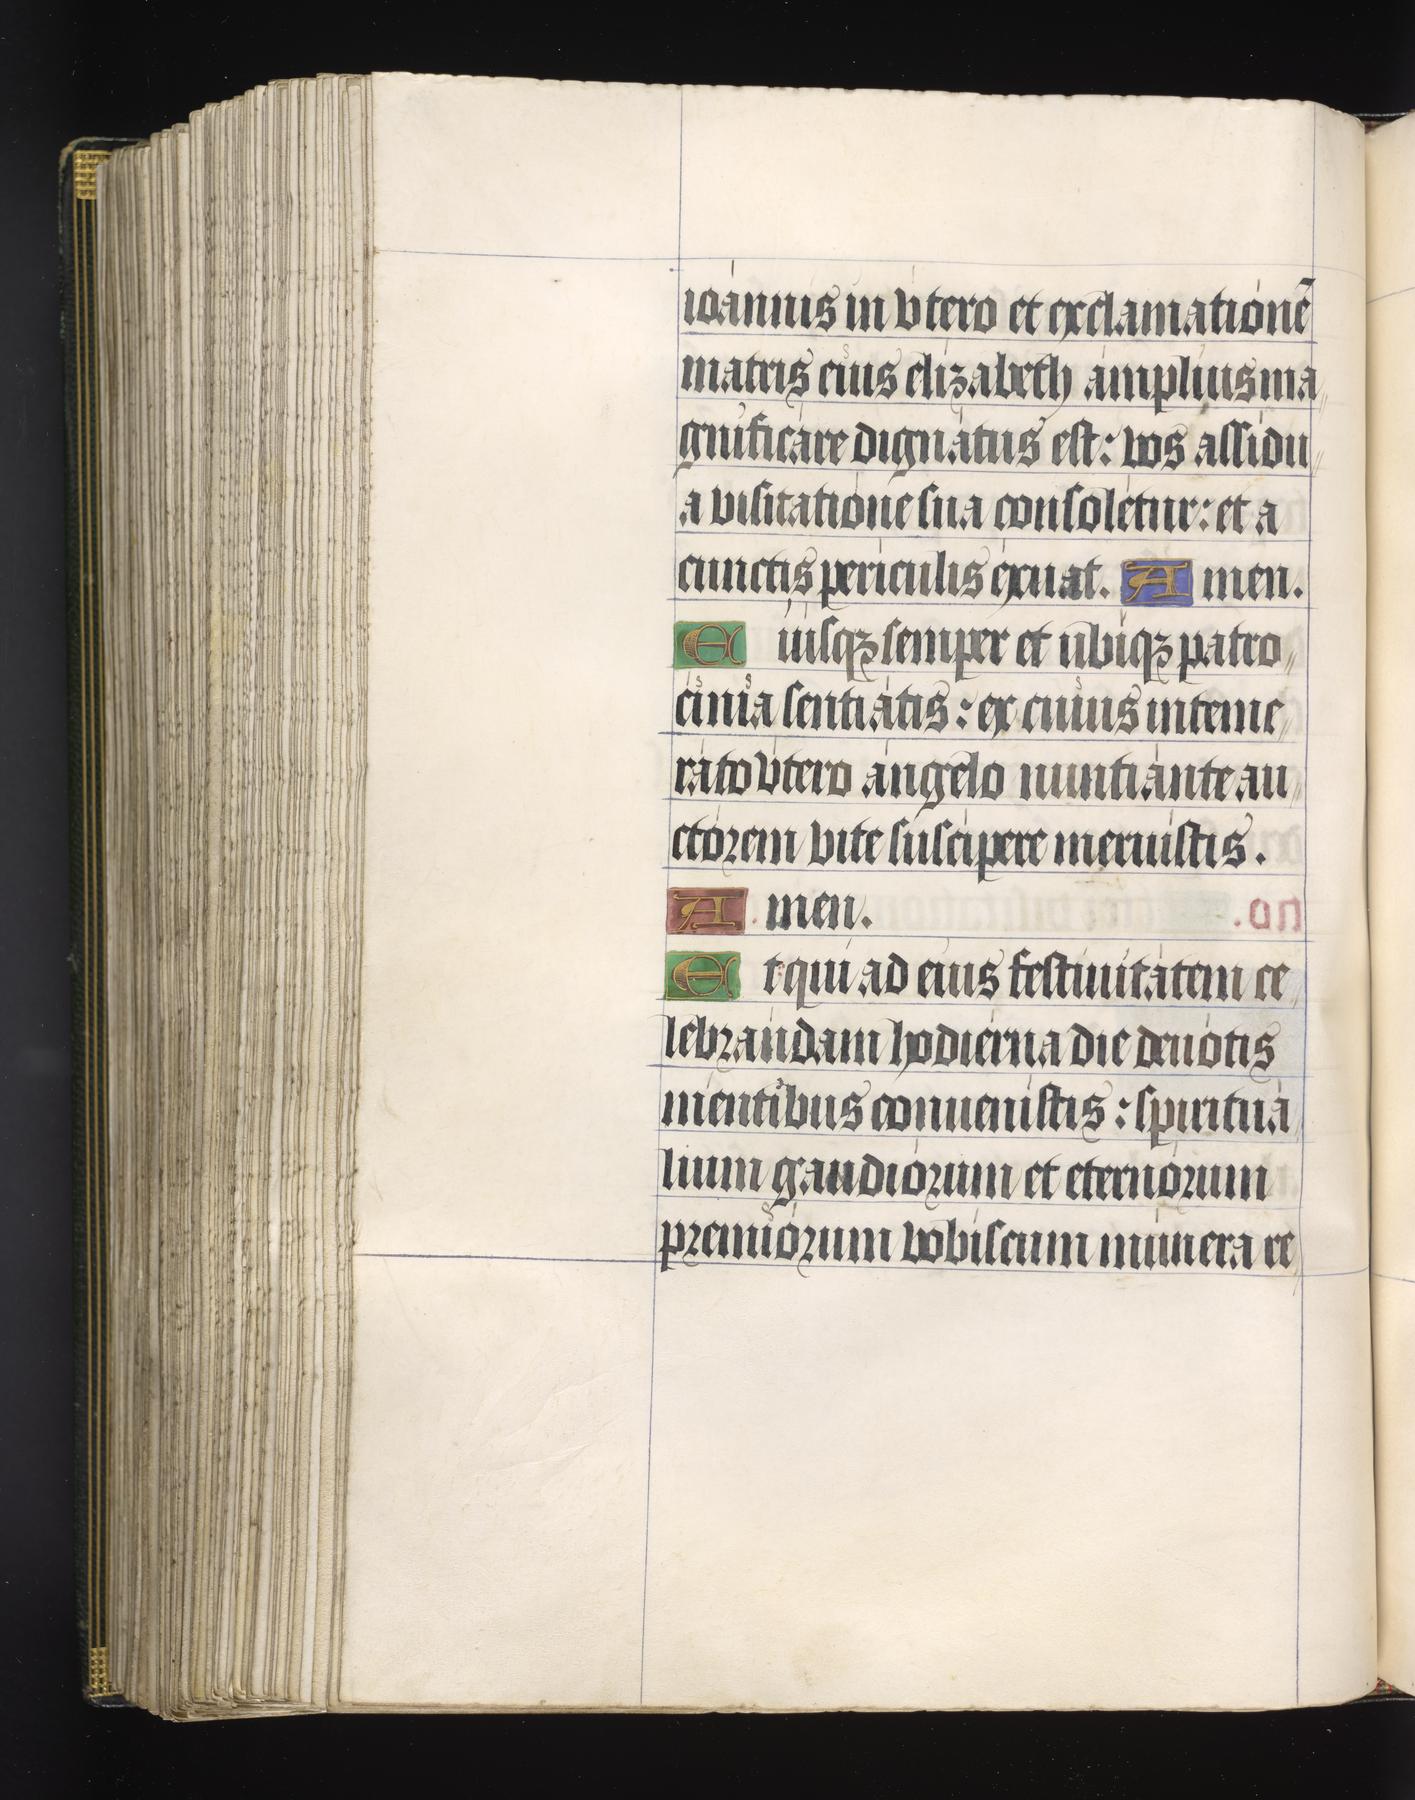 ioánnis in vtero et exclamatiónē
matris eius elizabeth ámplius ma
gnificáre dignátus est: vos assídu
a visitatióne sua consolétur: et a
cunctis perículis éxuat. Amen.
Eiúsqꝫ semper et vbíqꝫ patro
cínia sentiátis: ex cuius inteme
ráto vtero ángelo nuntiánte au
ctórem vite suscípere meruístis.
Amen.
Et qui ad eius festiuitátem ce
lebrándam hodiérna die deuótis
méntibus conuenístis: spirituá
lium gaudiórum et eternórum
premiórum vobíscum múnera re